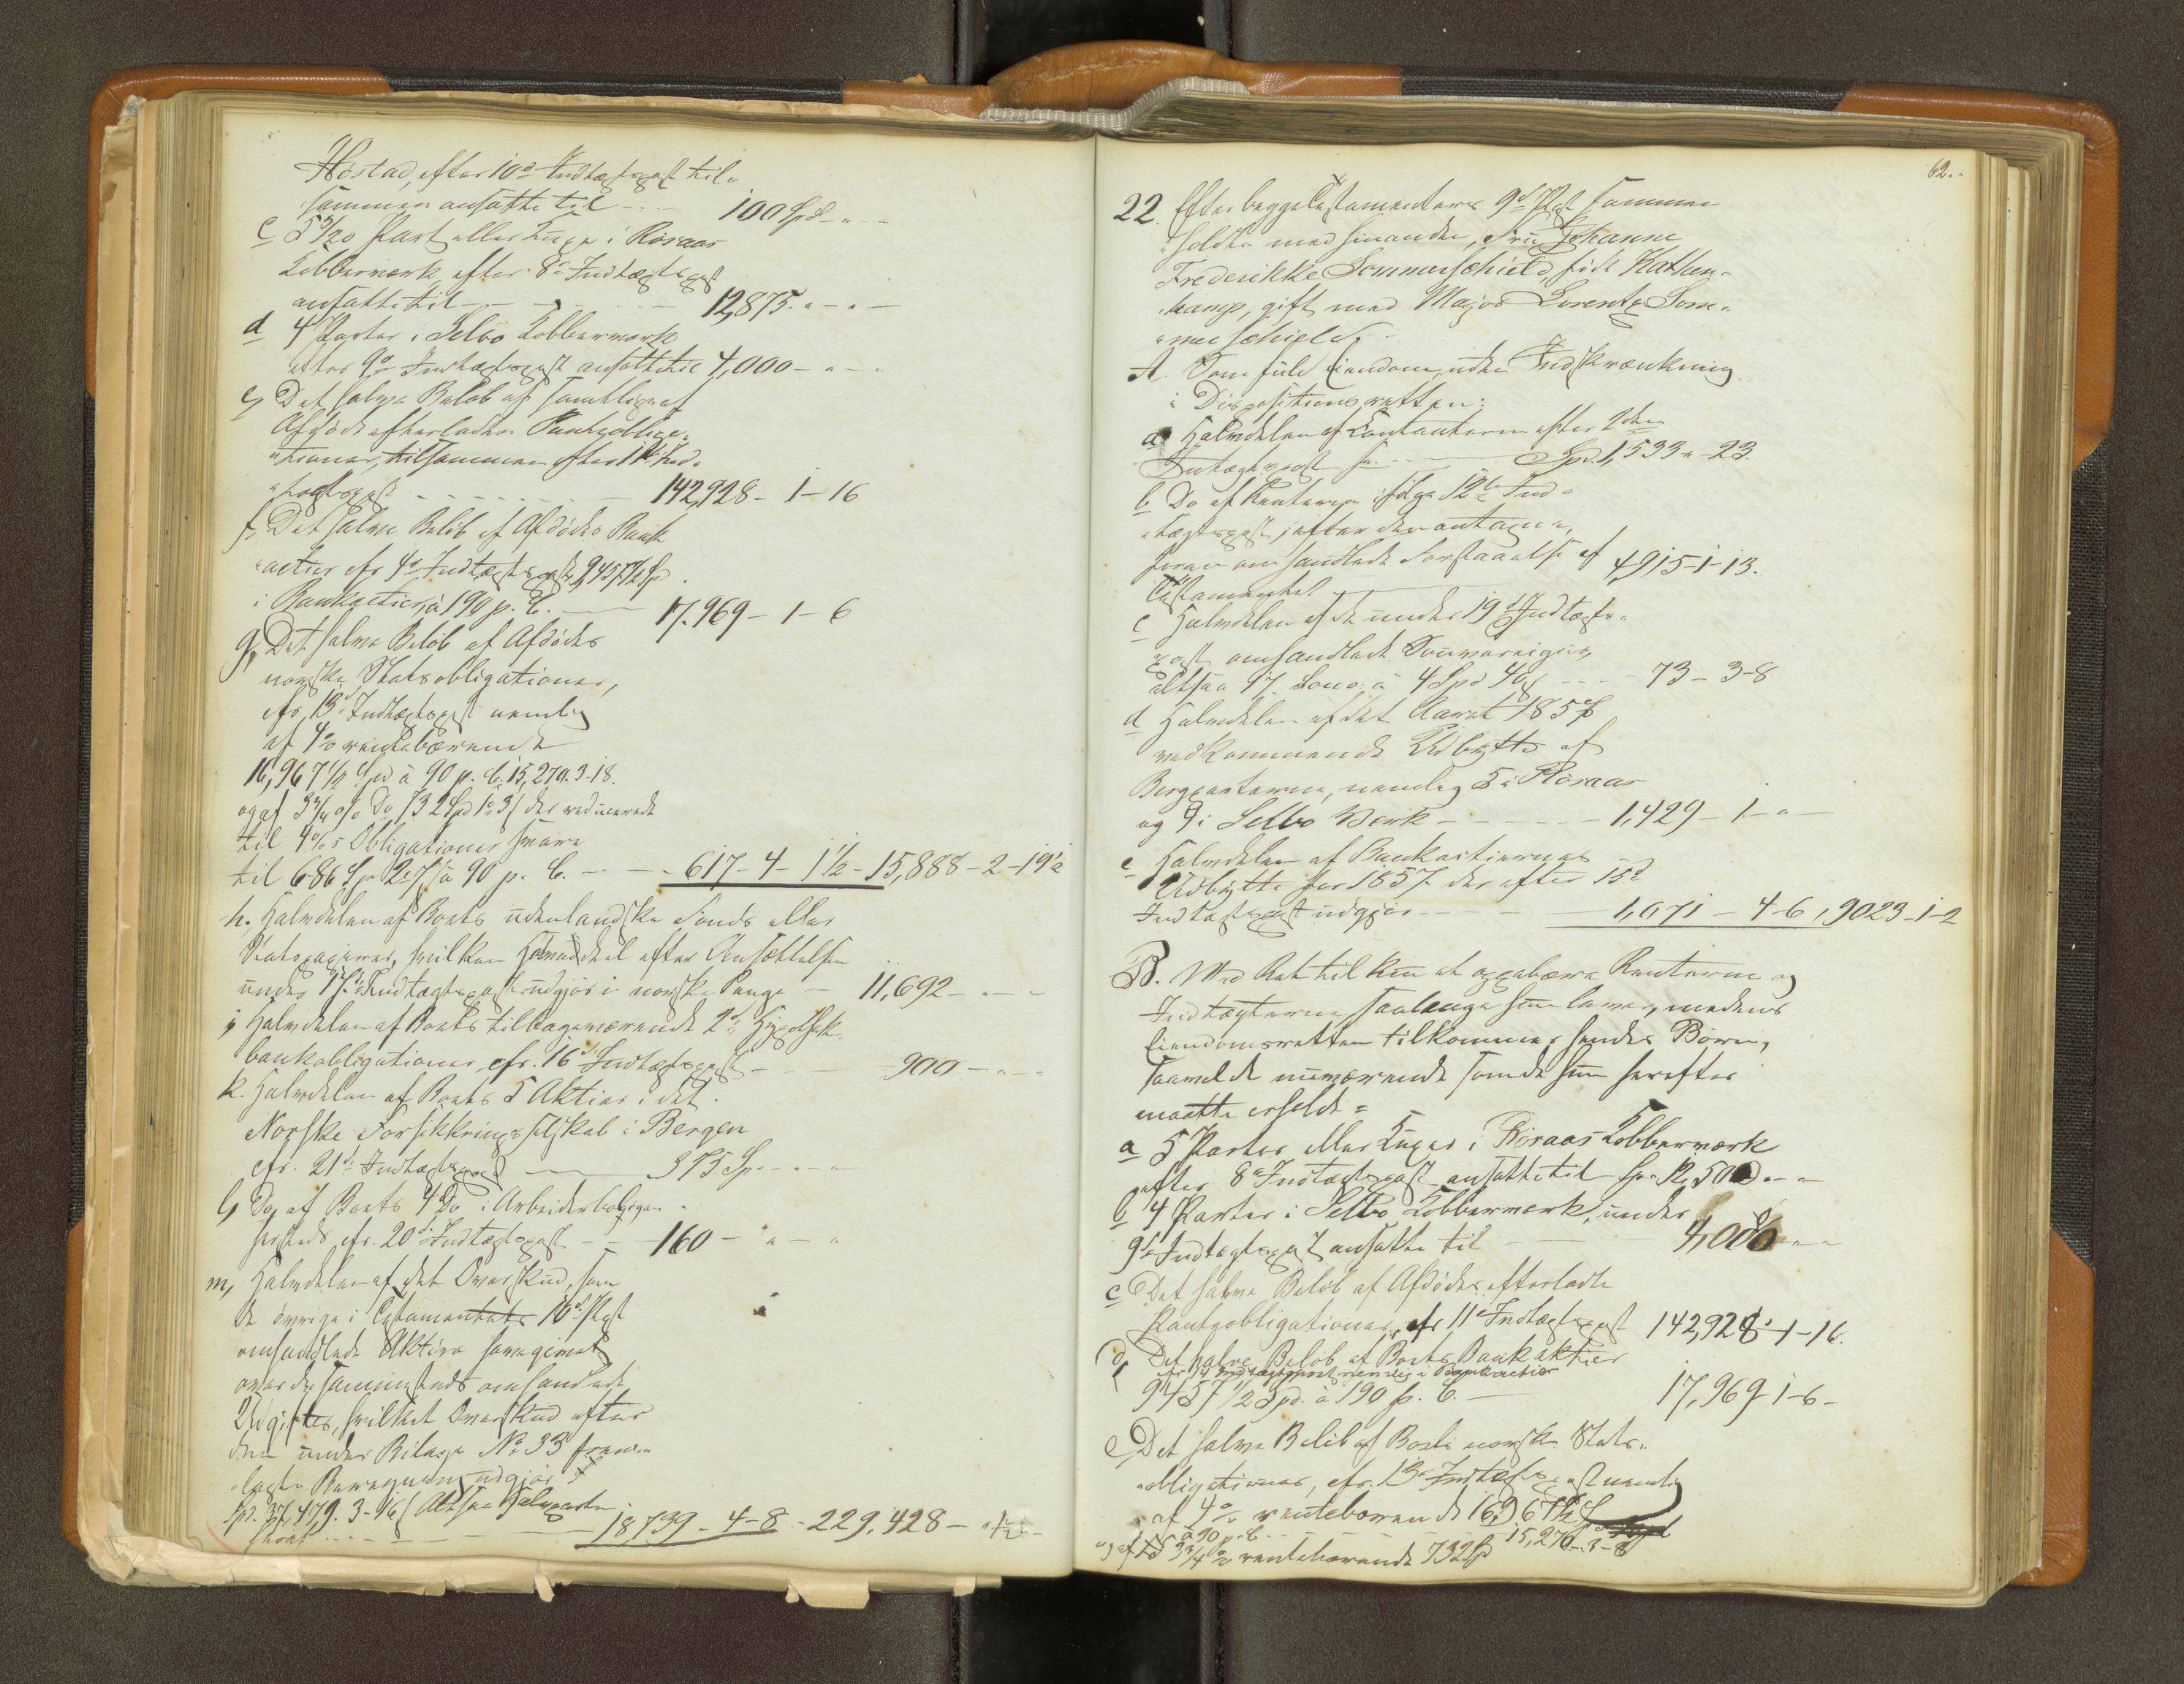 Høstad, efter 10de Indtægtspost til„
sammen ansatte til - - - 100 Spd „ - -
c 5 3/20 Part eller Kuxe i Røraas
Kobberværk, efter 8de Indtægtspost
ansatte til - - - - - 12,875. „ - „ -
d 4 Parter i Selbo Kobberværk
efter 9de Indtægtspost ansatte til 4,000 - „ - „
e, Det halve Beløb af samtlige af
Afdøde efterladte Panteobliga„
„tioner, tilsammen efter 11te Ind„
„tægtspost - - - - - - 142,928 - 1 - 16
f, Det halve Beløb af Afdødes Bank
„actier cfr 4de Indtægtspost 9,457½ Spd
i Bankactier, à 190 p. C. - 17,969 - 1 - 6
g, Det halve Beløb af Afdødes
norske Statsobligationer,
cfr 13de Indtægtspost nemlig
af 4% rentebærende
16,967½ Spd à 90 p. C. 15,270. 3-18.
og af 3¾ % Do 732 Spd der reducerede
til 4% s Obligationer svare
til 686 Sp 2 à 90 p. C. - - - 617 - 4 - 1½ - 15,888 - 2 - 19½
h. Halvdelen af Boets udenlandske Fonds eller
Statspapirer, hvilken Halvdeel efter Ansættelsen
under 17de Indtægtspost udgjør i norske Penge - 11,692 - „ - „
i, Halvdelen af Boets tilbageværende 2de Hypothek„
bankobligationer, cfr. 16de Indtægtspost - - 900 - „ - „
k. Halvdelen af Boets 5 Aktier i det
Norske Forsikkringsselskab i Bergen
cfr. 21de Indtægtspost - 375 Sp - „ - „
l, Do af Boets 4 Do i Arbeiderboliger
hersteds, cfr. 20de Indtægtspost - - 160 - „ - „
m, Halvdelen af det Overskud, som
de øvrige i Testamentets 10de Post
omhandlede Aktiva have givet
over de sammesteds omhandlede
Udgifter, hvilket Overskud efter
den under Bilage No 33 frem„
„lagte Beregning udgjør
Spd. 37,479. 3-16 Altsaa Halvparten
heraf - - - - 18,739 - 4 - 8 - 229,428 - „ - ½ -
62..
22. Efter begge Testamenters 9de Post sammen
„holdte med hinanden, Fru Johanne
Frederikke Sommerschield, født Kathen„
„kamp, gift med Major Lorentz Som„
„merschield.
A. Som fuld Eiendom uden Indskrænkning
i Dispositionsretten:
a Halvdelen af Contanterne efter 2den
Indtægtspost - - Spd. 1,533 „ - 23.
b. Do af Renterne ifølge 12te Ind„
„tægtspost, efter den antagne,
foran omhandlede Forstaaelse af
Testamentet - 4915 - 1 - 13.
c Halvdelen af de under 19de Indtægts„
„post omhandlede
altsaa 17 à 4 Spd 40 - - - 73 - 3 - 8
d Halvdelen af det Aaret 1857
vedkommende Udbytte af
Bergparterne, nemlig 5 i Røraas
og 9 i Selbo Værk - - - - 1,429 - 1 - „ -
e Halvdelen af Bankactiernes
Udbytte for 1857 der efter 15de
Indtægtspost udgjør - - - 1,071 - 4 - 6, 9023 - 1 - 2
B. Med Ret til kun at oppebære Renterne og
Indtægterne saalænge hun lever, medens
Eiendomsretten tilkommer hendes Børn,
saavel de nuværende som de hun herefter
maatte erholde =
a 5 Parter eller Kuxer i Røraas Kobberværk
efter 8de Indtægtspost ansatte til Sp. 12,500 „ -
b 4 Parter i Selbo Kobberværk, under
9de Indtægtspost ansatte til - 4,000 „ „
c Det halve Beløb af Afdødes efterladte
Panteobligationer, cfr 11te Indtægtspost 142,928 - 1 - 16.
d, Det halve Beløb af Boets Bankaktier
cfr 14 Indtægtspost nemlig i Bankactier
9457½ Spd. à 190 p. C. - 17,969 - 1 - 6 -
e, Det halve Beløb af Boets norske Stats„
„obligationer, cfr. 13de Indtægtspost nemlig
af 4% renteberende 16,967½
à 90 p. C. - - - 15,270. - 3 - 18
og af 3¾ % rentebærende 732 Spd